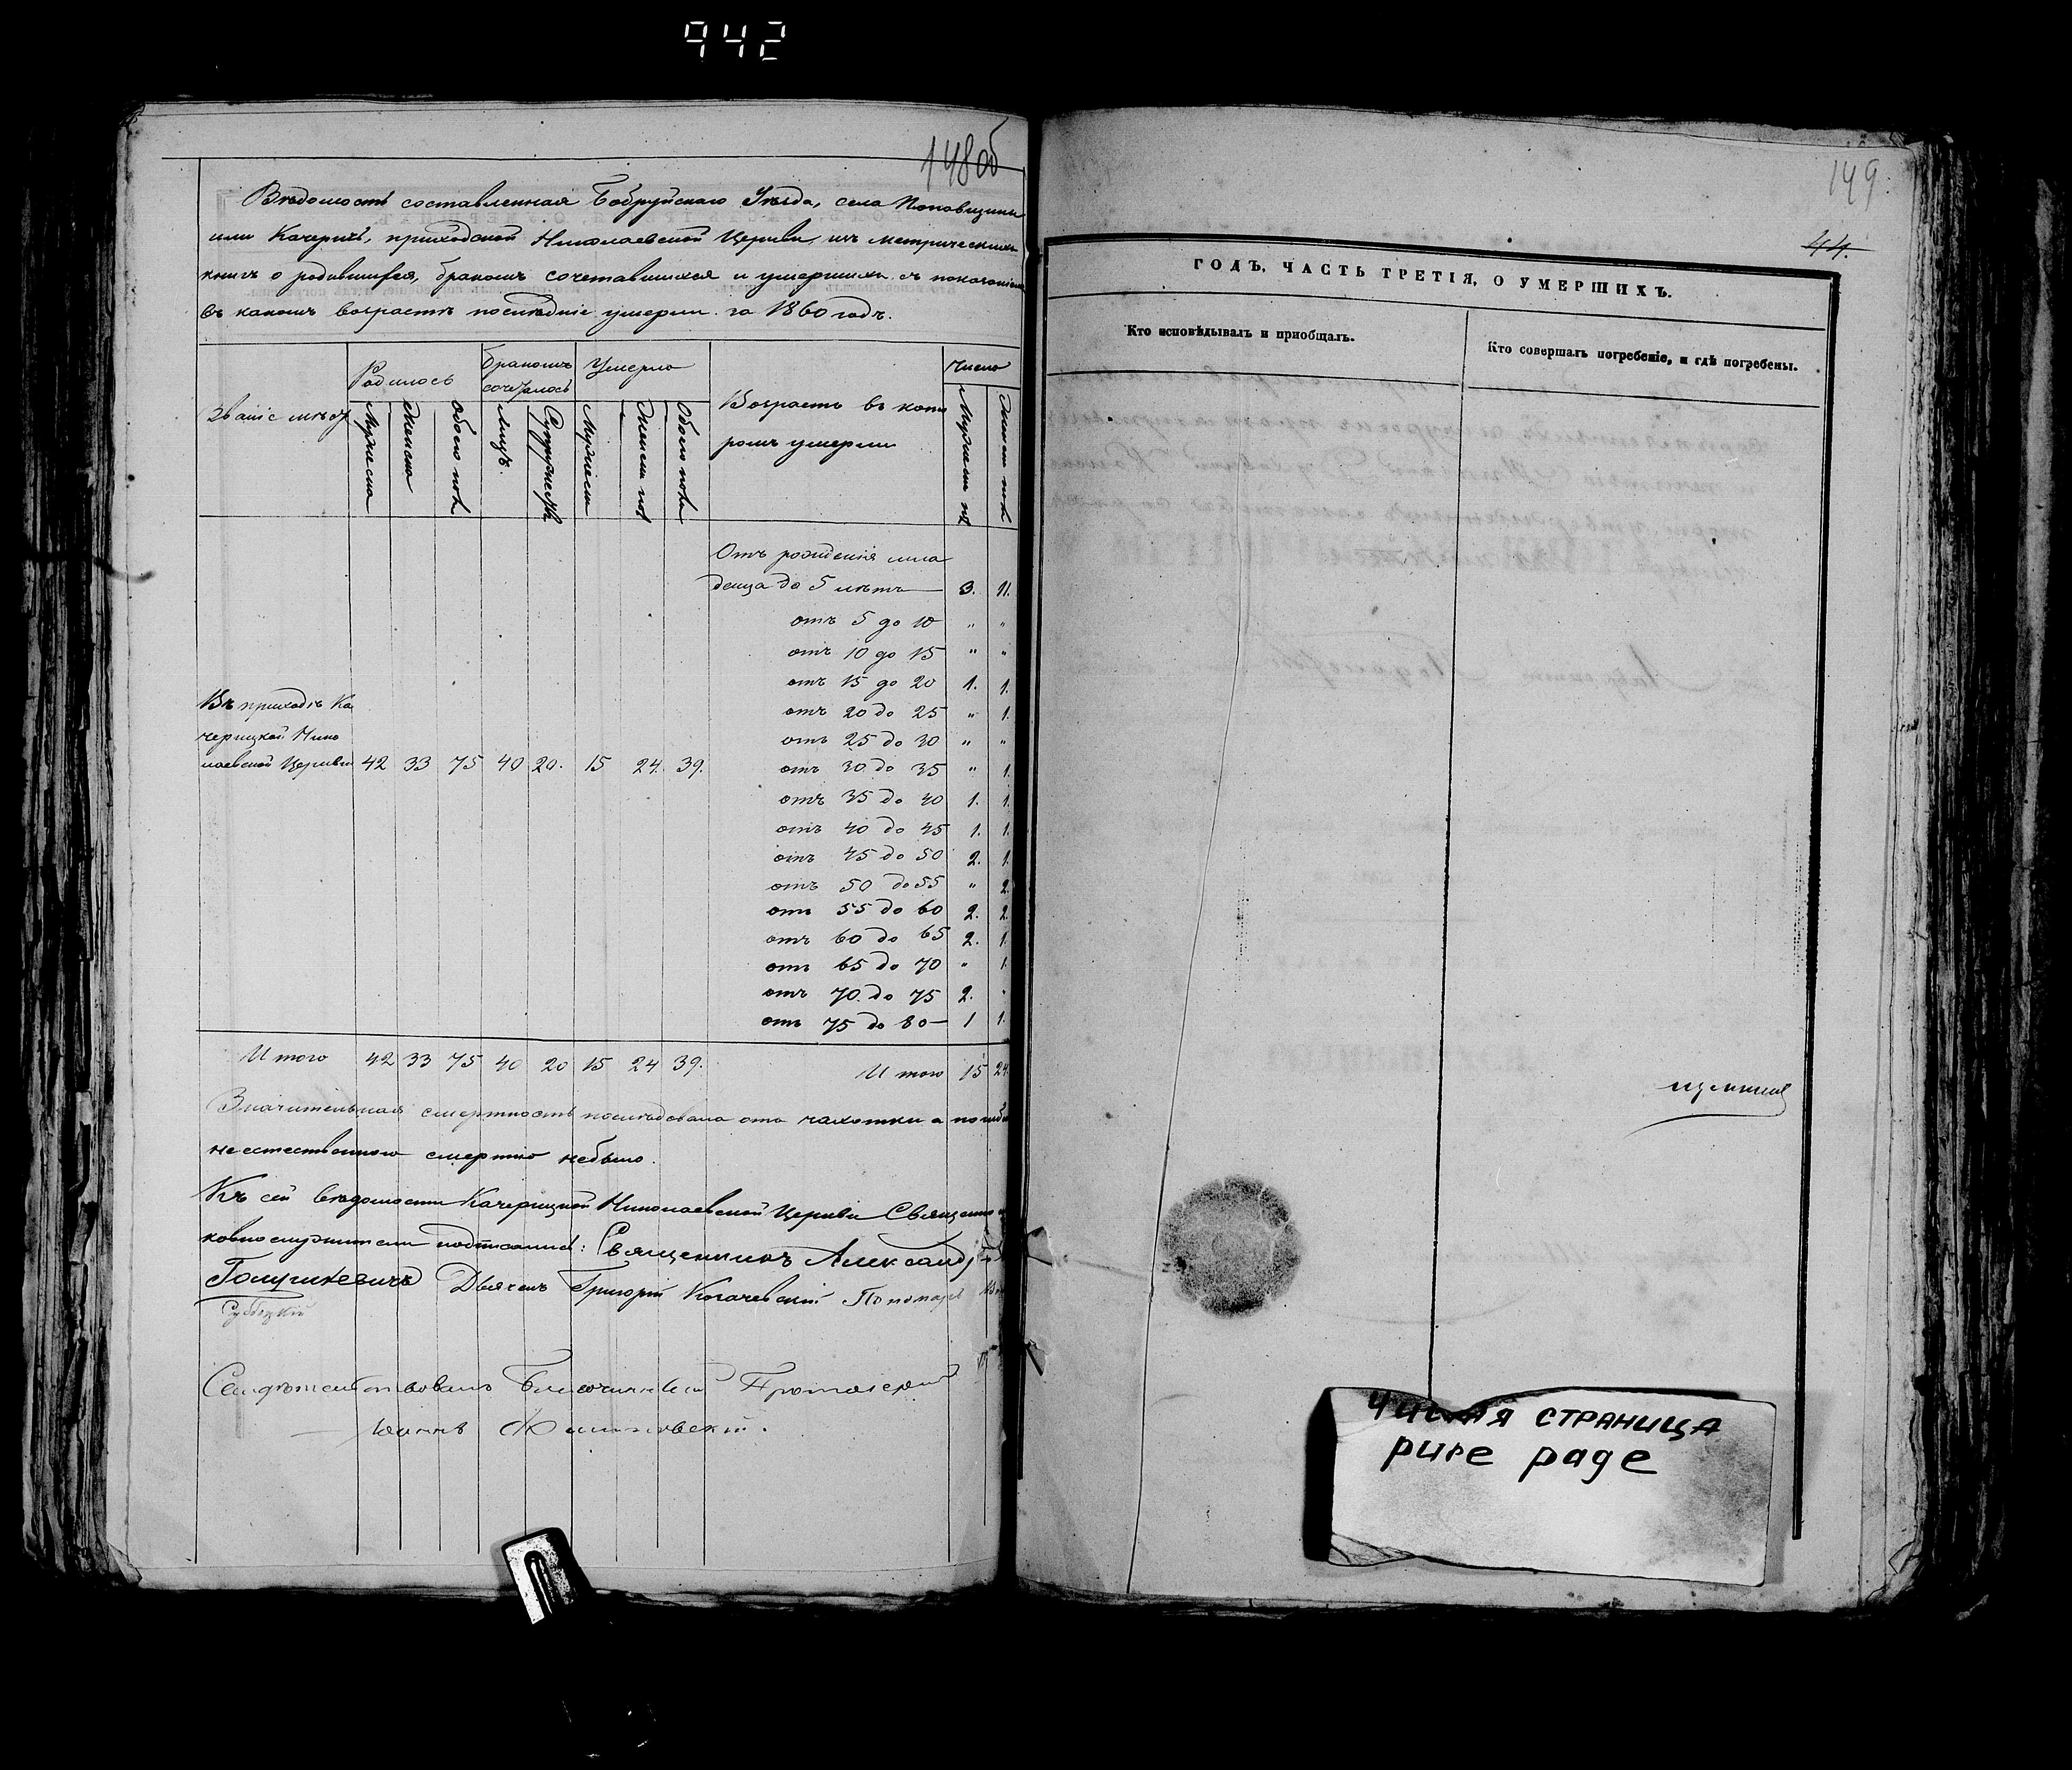 942
148об
Вѣдомость составленная Бобруйскаго Уѣзда, села Поповщины
или Качеричъ, приходской Николаевской Церкви, изъ метрическихъ
книгъ о родившихся, бракомъ сочетавшихся и умершихъ съ показаніемъ
въ какомъ возрастѣ послѣдніе умерли за 1860 годъ.
Званіе мѣстъ
Родилось
Бракомъ сочеталось
Умерло
Возрастъ въ кото
ромъ умерли
Число
Мужеска
Женска
Обоего пола
лицъ.
Супружествъ
Мужеска
Женск. пол
Обоего пола
Мужеск. пол
Женск. пол
Отъ рожденія мла
денца до 5 лѣтъ — 3. 11.
отъ 5 до 10 " "
отъ 10 до 15 " "
отъ 15 до 20 1. 1.
отъ 20 до 25 " 1.
отъ 25 до 30 " "
Въ приходѣ Ка
черицкой Нико
лаевской Церкви 42 33 75 40 20. 15 24. 39. отъ 30 до 35 " 1.
отъ 35 до 40 1. 1.
отъ 40 до 45 1. 1.
отъ 45 до 50 2. 1.
отъ 50 до 55 " 2.
отъ 55 до 60 2. 2.
отъ 60 до 65 2. 1.
отъ 65 до 70 " 1.
отъ 70 до 75 2. "
отъ 75 до 80 — 1 1.
Итого 42 33 75 40 20 15 24 39. Итого 15 24
Значительная смертность послѣдовала отъ чахотки а
неестественною смертію небыло.
Къ сей вѣдомости Качерицкой Николаевской Церкви Священно
подписались: Священникъ Александръ
Голушкевичъ Дьячекъ Григорій Пономарь
Благочинный Протоіерей
Іоаннъ
149.
44.
ГОДЪ, ЧАСТЬ ТРЕТІЯ, О УМЕРШИХЪ.
Кто исповѣдывалъ и приобщалъ.
Кто совершалъ погребеніе, и гдѣ погребены.
ЧИСТАЯ СТРАНИЦА
pure page